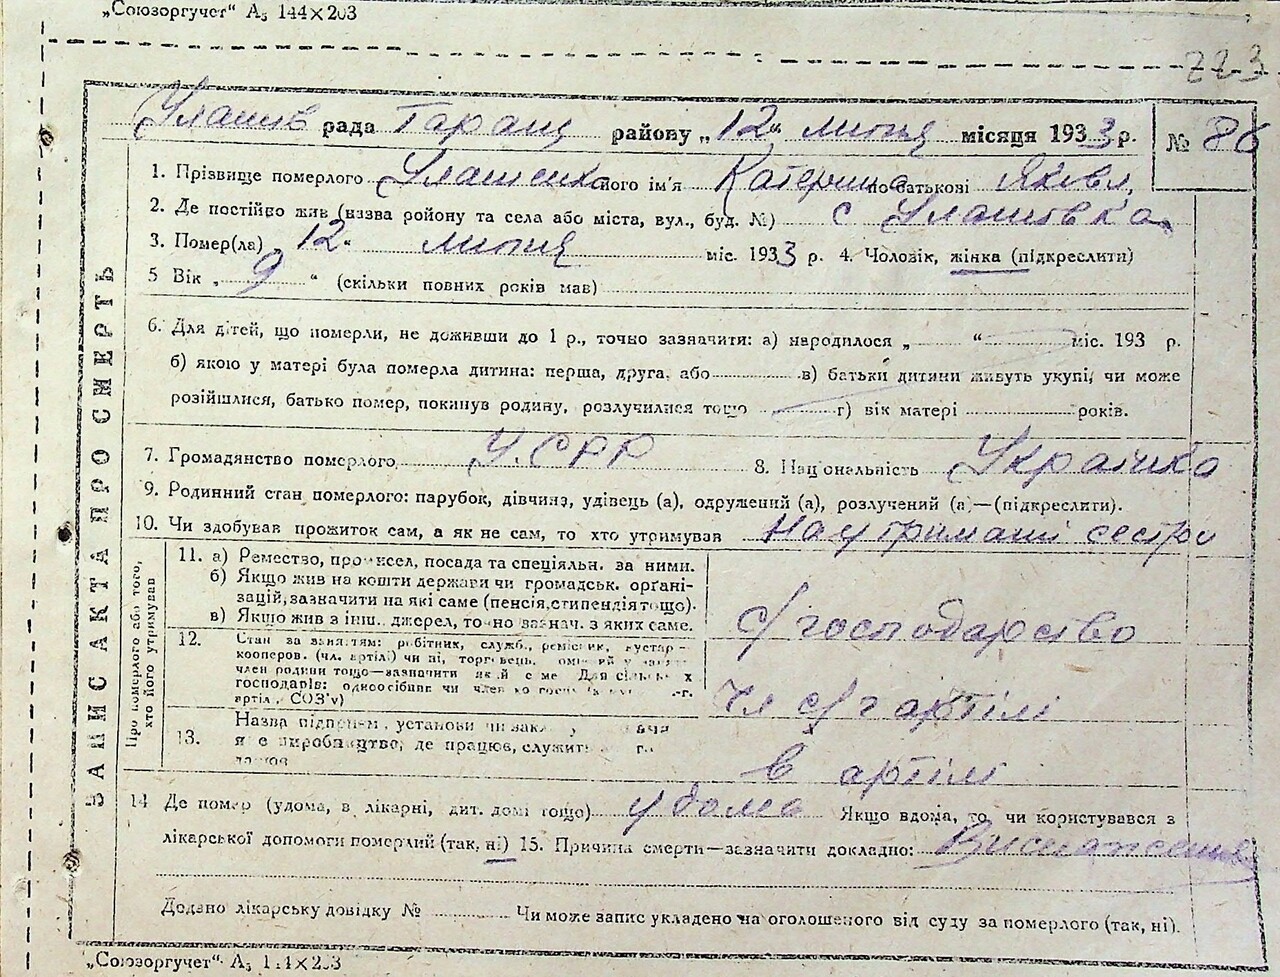 „Союзоргучет“ А₅ 144×203
223
Улашів рада Таращ району „12“ липня місяця 1933 р. № 86
1. Прізвище померлого Улашенко його ім'я Катерина по батькові Яковл,
2. Де постійно жив (назва району та села або міста, вул., буд. №) с Улашовка
3. Помер(ла) „12“ липня міс. 1933 р. 4. Чоловік, жінка (підкреслити)
5 Вік „ 9 “ (скільки повних років мав)
6. Для дітей, що померли, не доживши до 1 р., точно зазначити: а) народилося „ “ міс. 193 р.
б) якою у матері була померла дитина: перша, друга, або в) батьки дитини живуть укупі, чи може
розійшлися, батько помер, покинув родину, розлучилися тощо г) вік матері років.
7. Громадянство померлого У.СРР 8. Національність Українка
9. Родинний стан померлого: парубок, дівчина, удівець (а), одружений (а), розлучений (а)—(підкреслити).
10. Чи здобував прожиток сам, а як не сам, то хто утримував На утриманні сестри
ЗАПИС АКТА ПРО СМЕРТЬ
Про померлого або того, хто його утримував
11. а) Ремество, промисел, посада та спеціяльн. за ними.
б) Якщо жив на кошти держави чи громадськ. орґані-
зацій, зазначити на які саме (пенсія, стипендія тощо).
в) Якщо жив з інш. джерел, точно зазнач. з яких саме.
с/господарство
12. Стан за заняттям: робітник, служб., ремісник, кустар-
кооперов. (чл. артілі) чи ні, торговець,
член родини тощо—зазначити який саме Для сільських
господарів: одноосібник чи член
артіл, СОЗ'у)
Чл с/г артілі
Назва підприєм., установи чи
13. є виробництво, де працює, служить
в артілі
14 Де помер (удома, в лікарні, дит. домі тощо) у дома Якщо вдома, то, чи користувався з
лікарської допомоги померлий (так, ні) 15. Причина смерти—зазначити докладно: Виснаження
Додано лікарську довідку № Чи може запис укладено на оголошеного від суду за померлого (так, ні).
„Союзоргучет“ А₅ 144×203